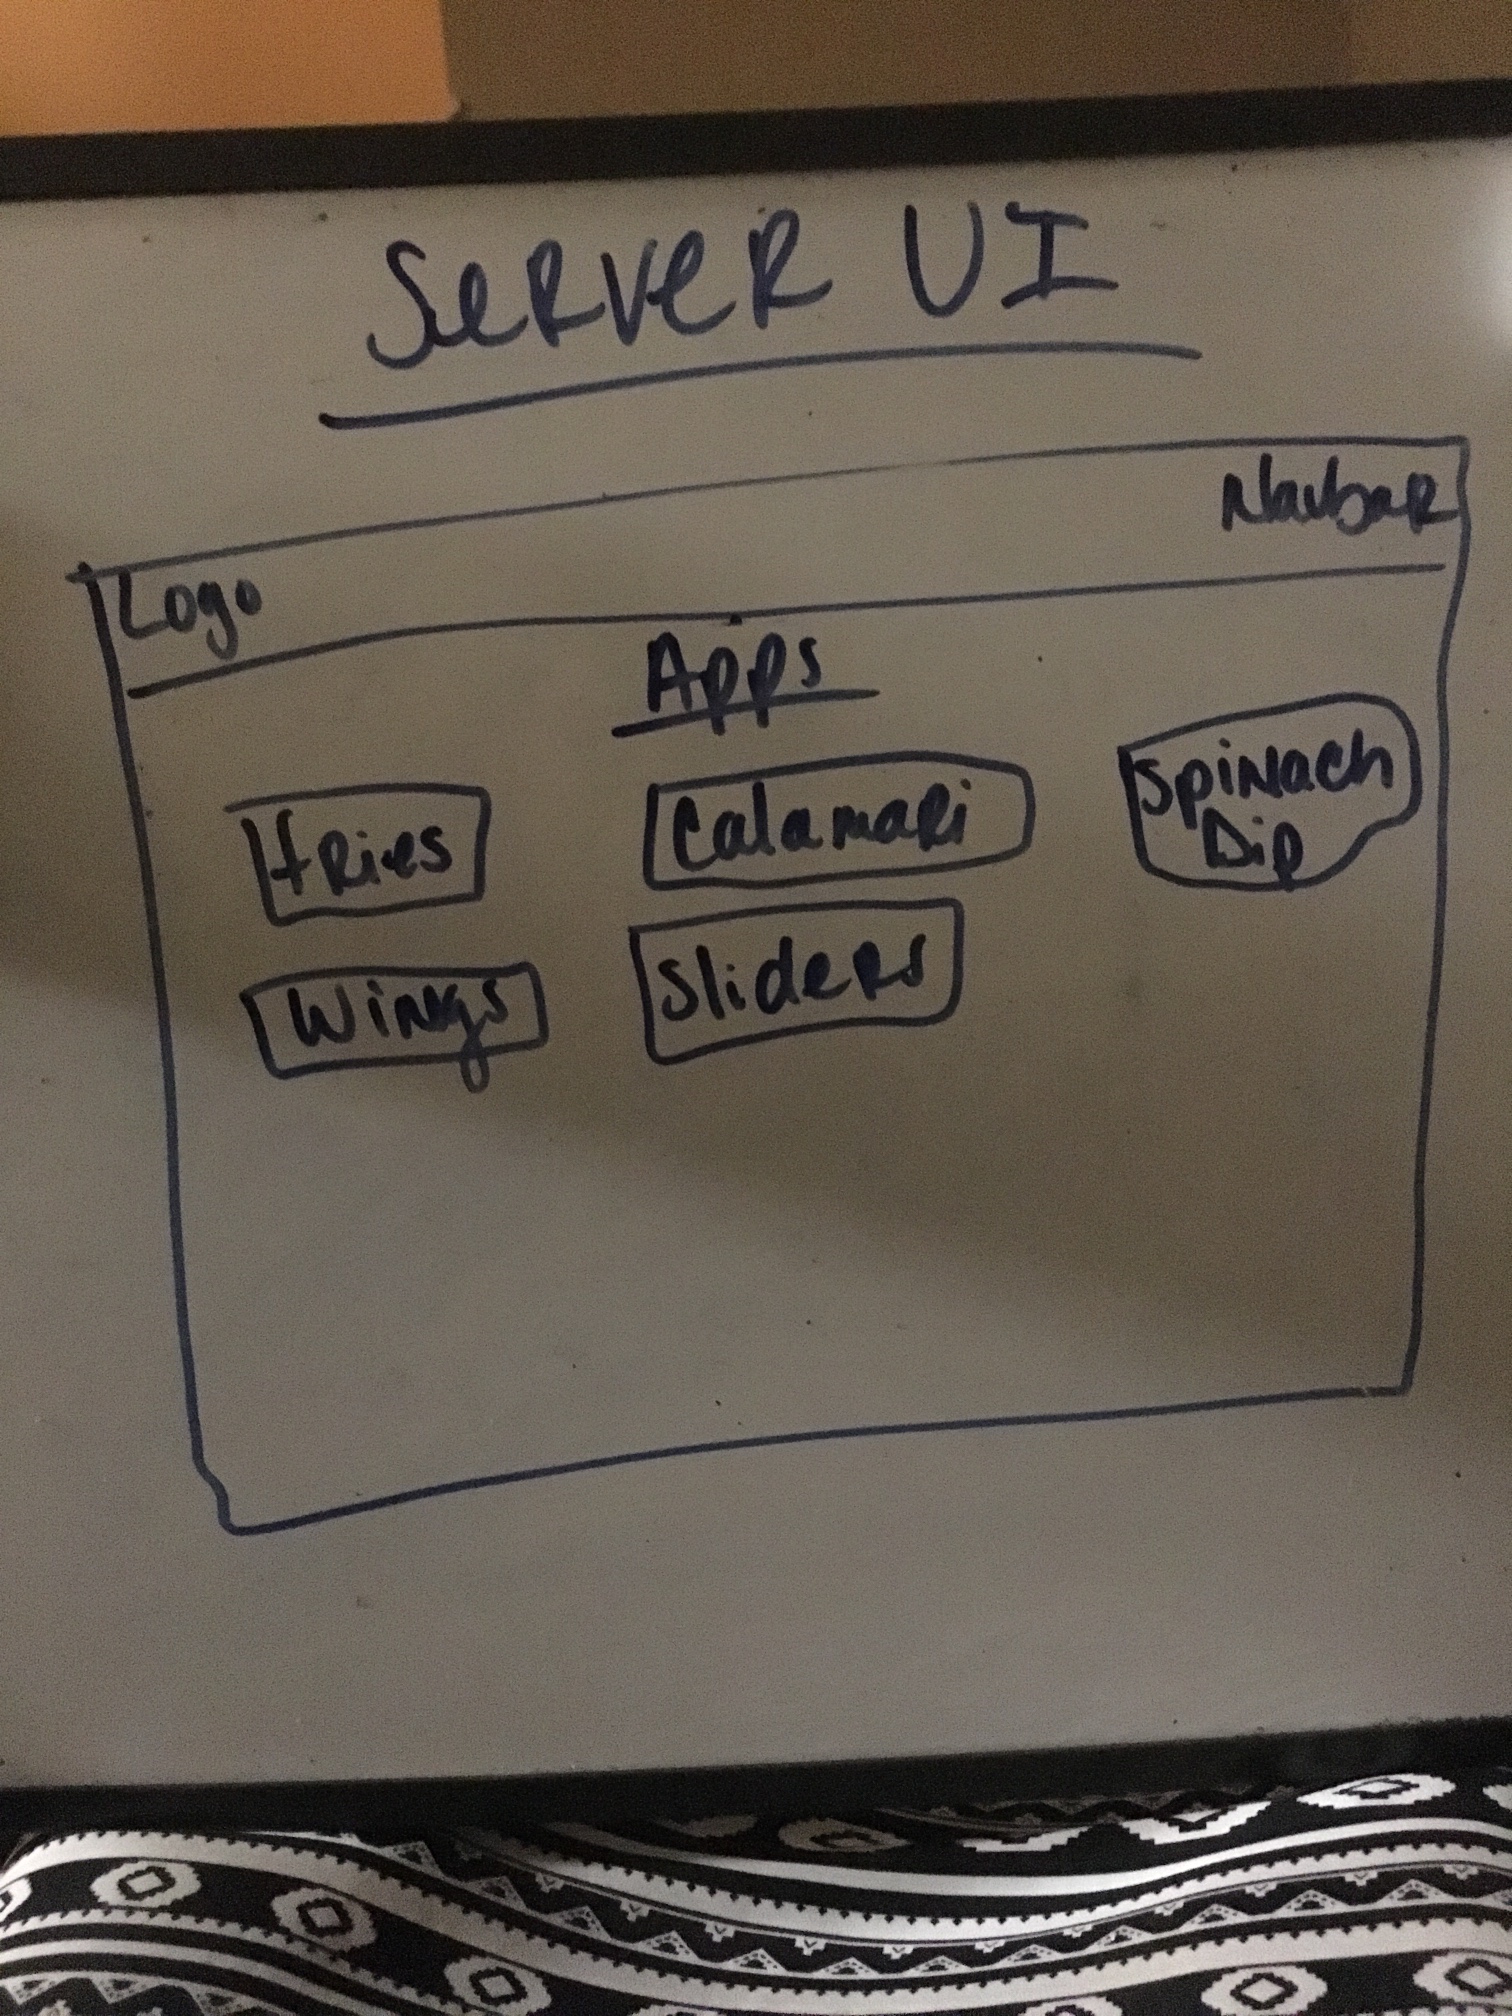 Server UI
Navbar
Logo
Apps
fries
Calamari
Spinach
Dip
Wings
Sliders